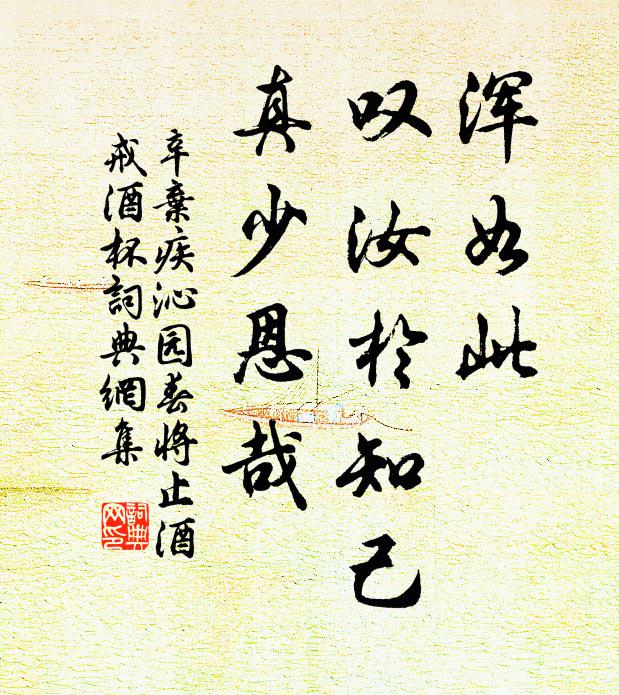 浑如此
叹汝於知己
真少恩哉
辛棄疾沁园春将止酒
戒酒杯詞典網集
詞典
网印